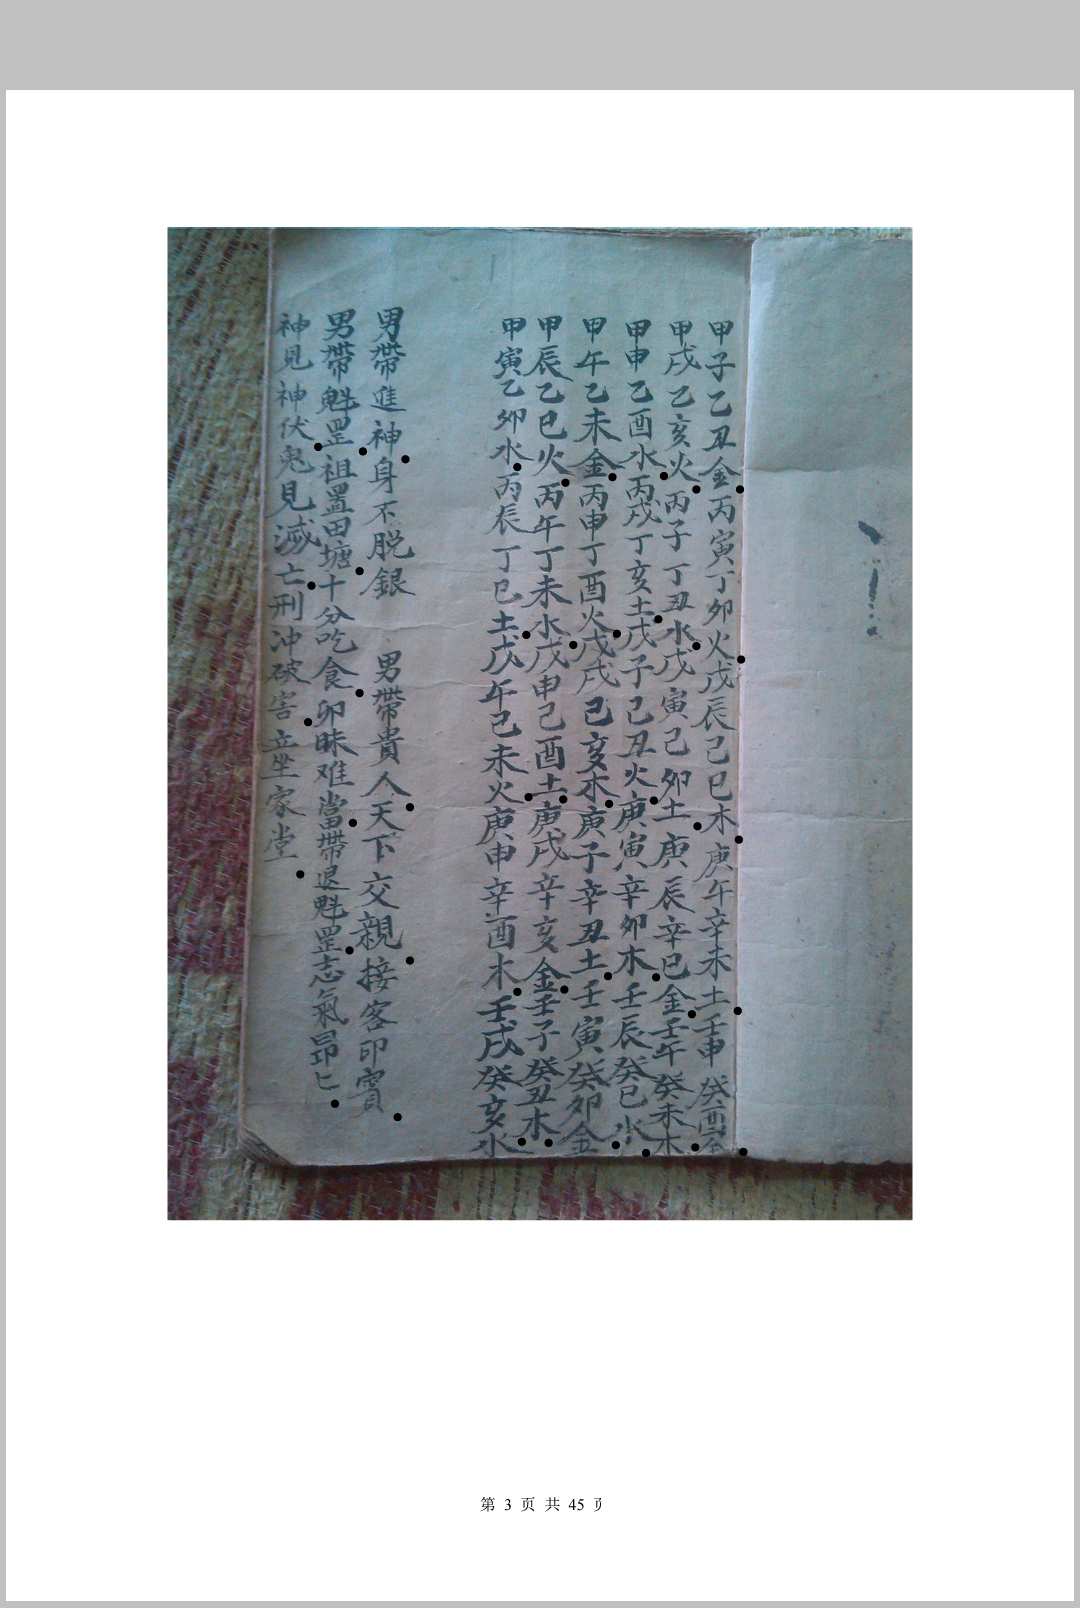 甲子乙丑金丙寅丁卯火戊辰己巳木庚午辛未土壬申癸酉金
甲戌乙亥火丙子丁丑水戊寅己卯土庚辰辛巳金壬午癸未木
甲申乙酉水丙戌丁亥土戊子己丑火庚寅辛卯木壬辰癸巳水
甲午乙未金丙申丁酉火戊戌己亥木庚子辛丑土壬寅癸卯金
甲辰乙巳火丙午丁未水戊申己酉土庚戌辛亥金壬子癸丑木
甲寅乙卯水丙辰丁巳土戊午己未火庚申辛酉木壬戌癸亥水
男帶進神身不脱銀 男帶貴人天下交親接客印賓
男帶魁罡祖置田塘十分吃食卯昧难當帶退魁罡志氣昂匕
神見神伏鬼見滅亡刑冲破害立坐家堂
第 3 页 共 45 页